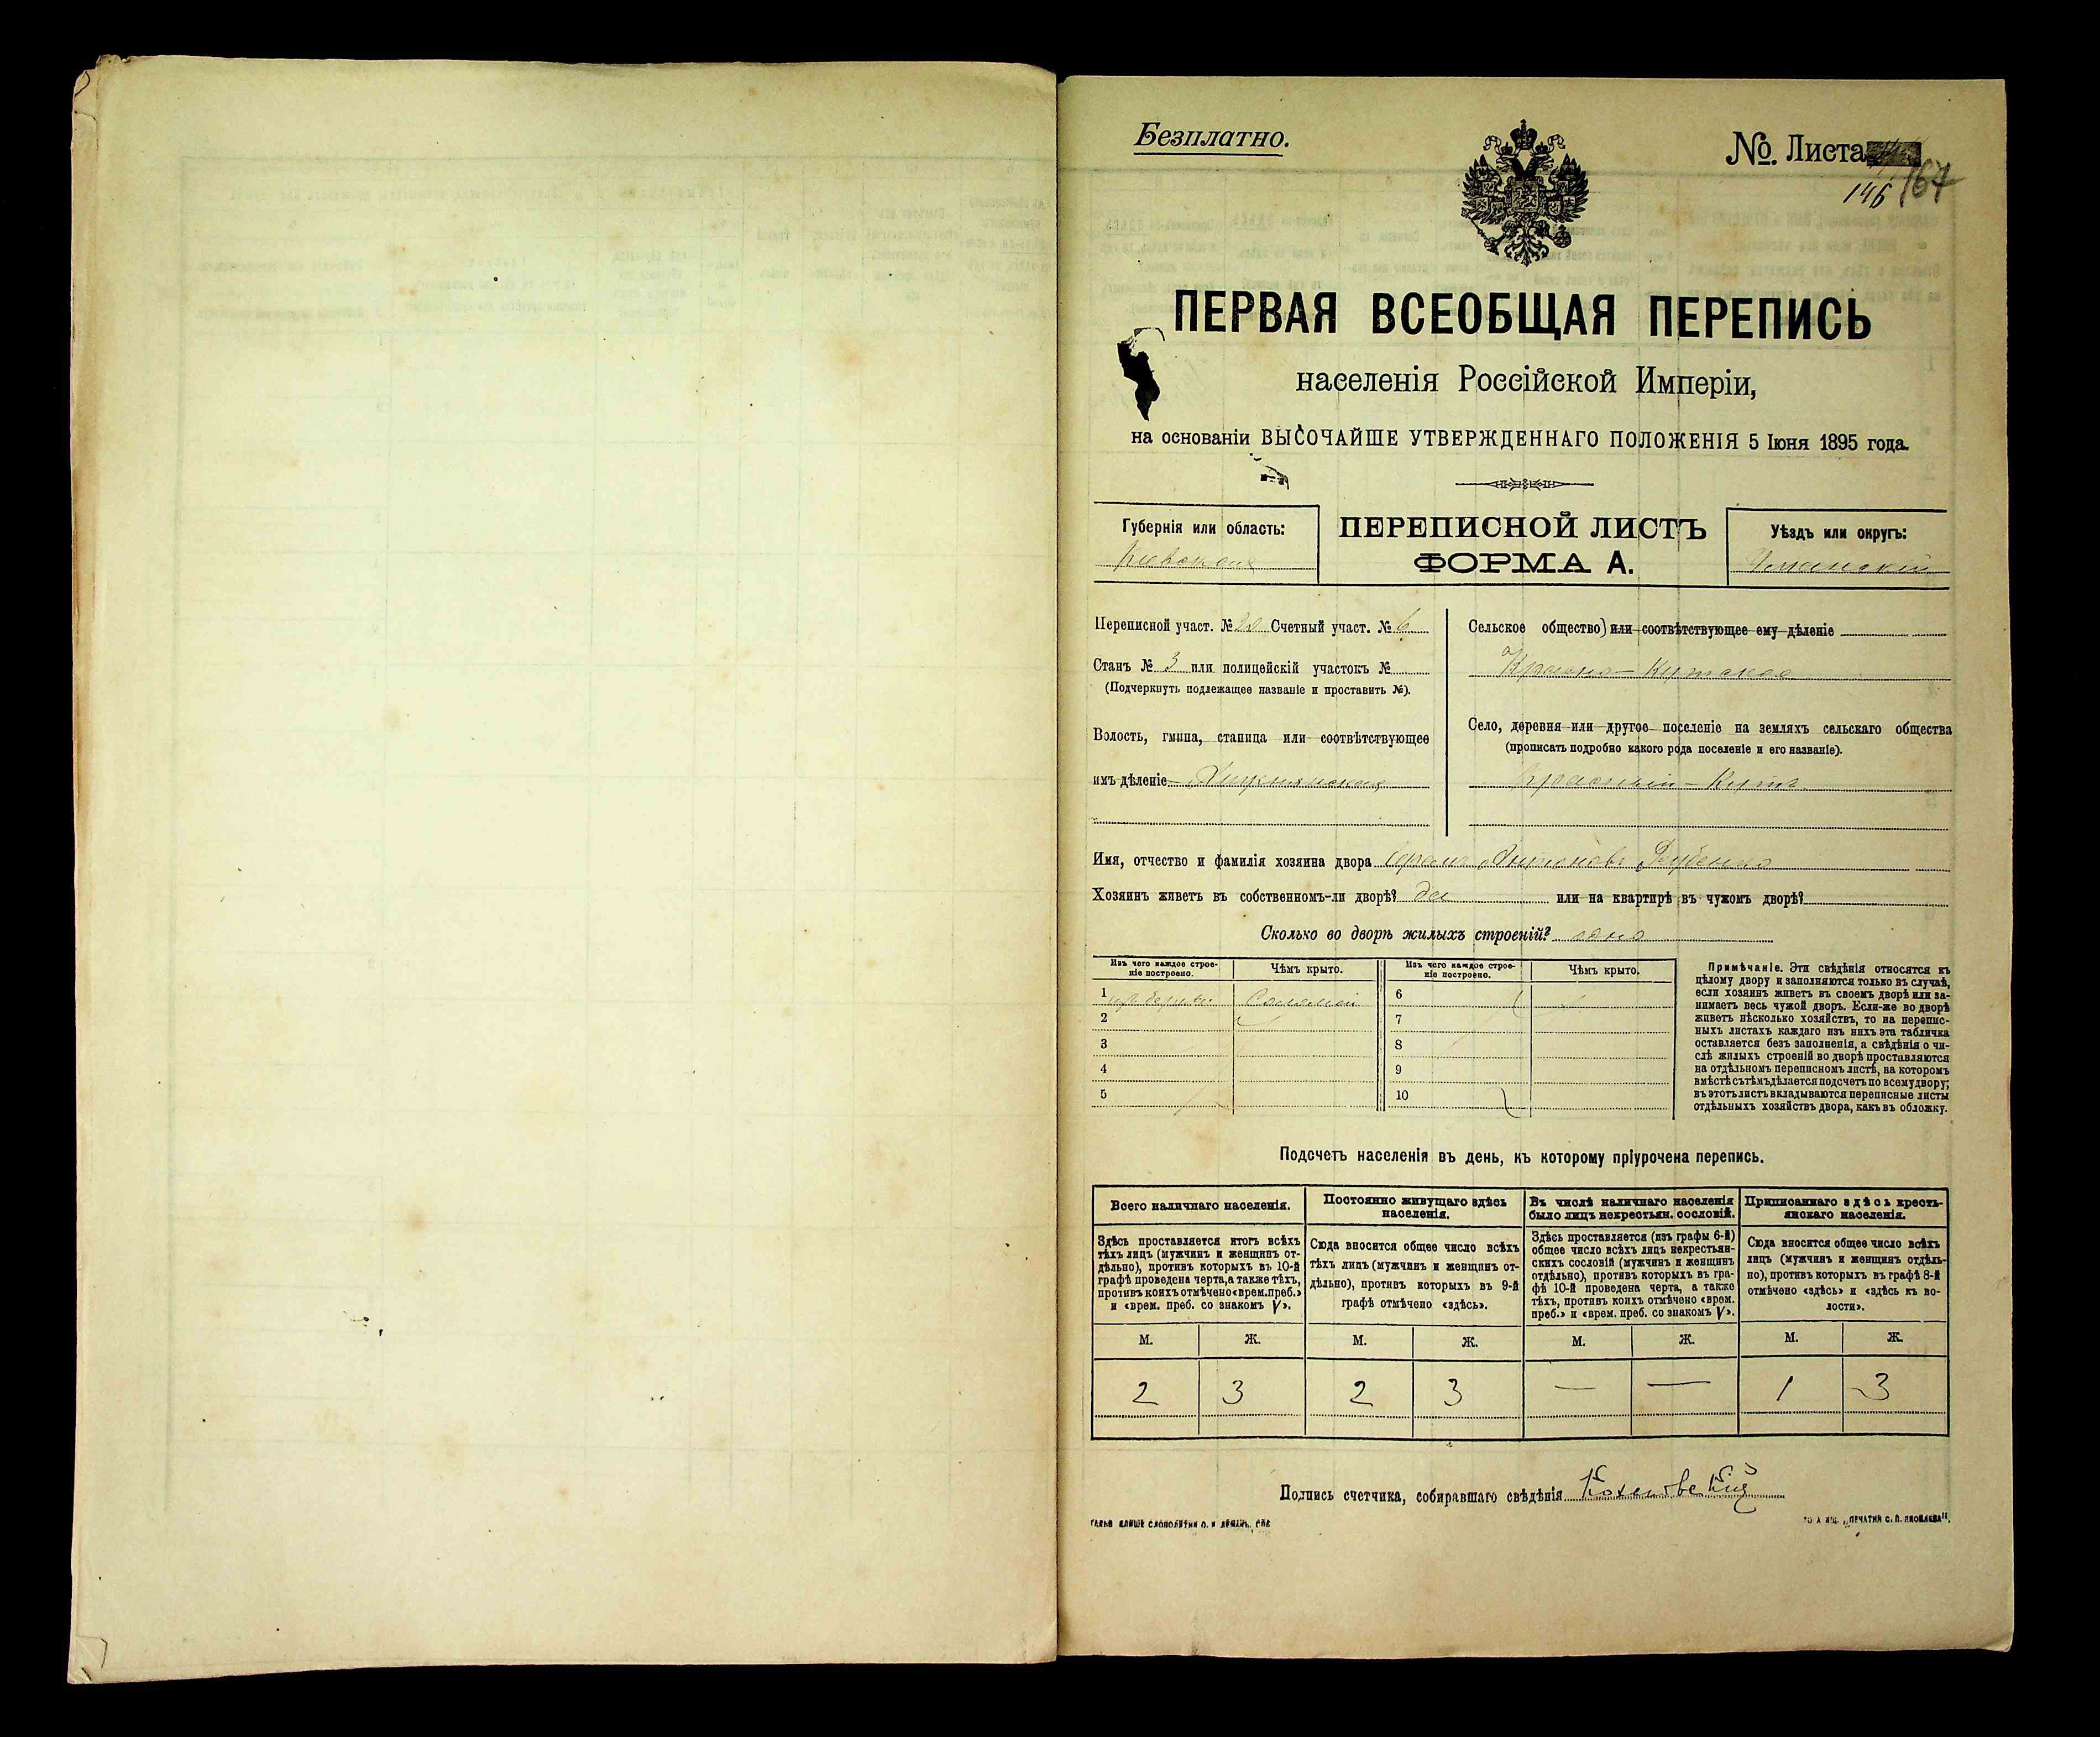 Безплатно.
№. Листа
146 167
ПЕРВАЯ ВСЕОБЩАЯ ПЕРЕПИСЬ
населенія Россійской Имперіи,
на основаніи ВЫСОЧАЙШЕ УТВЕРЖДЕННАГО ПОЛОЖЕНІЯ 5 Іюня 1895 года.
Губернія или область:
Кіевская
ПЕРЕПИСНОЙ ЛИСТЪ
ФОРМА А.
Уѣздъ или округъ:
Уманскій
Переписной участ. № Счетный участ. № 6
Станъ № 3 или полицейскій участокъ №
(Подчеркнуть подлежащее названіе и проставить №).
Волость, гмина, станица или соотвѣтствующее
имъ дѣленіе
Сельское общество) или соотвѣтствующее ему дѣленіе
Красно-Кутское
Село, деревня или другое поселеніе на земляхъ сельскаго общества
(прописать подробно какого рода поселеніе и его названіе).
Красный-Кутъ
Имя, отчество и фамилія хозяина двора
Хозяинъ живетъ въ собственномъ-ли дворѣ? да или на квартирѣ въ чужомъ дворѣ?
Сколько во дворѣ жилыхъ строеній? одно
Изъ чего каждое строеніе построено.
Чѣмъ крыто.
Изъ чего каждое строеніе построено.
Чѣмъ крыто.
1 изъ дерева Соломой 6
2 7
3 8
4 9
5 10
Примѣчаніе. Эти свѣдѣнія относятся къ
цѣлому двору и заполняются только въ случаѣ,
если хозяинъ живетъ въ своемъ дворѣ или за-
нимаетъ весь чужой дворъ. Если-же во дворѣ
живетъ нѣсколько хозяйствъ, то на перепис-
ныхъ листахъ каждаго изъ нихъ эта табличка
оставляется безъ заполненія, а свѣдѣнія о чи-
слѣ жилыхъ строеній во дворѣ проставляются
на отдѣльномъ переписномъ листѣ, на которомъ
вмѣстѣ съ тѣмъ дѣлается подсчетъ по всему двору;
въ этотъ листъ вкладываются переписные листы
отдѣльныхъ хозяйствъ двора, какъ въ обложку.
Подсчетъ населенія въ день, къ которому пріурочена перепись.
Всего наличнаго населенія.
Постоянно живущаго здѣсь
населенія.
Въ числѣ наличнаго населенія
было лицъ некрестьян. сословій.
Приписаннаго здѣсь кресть-
янскаго населенія.
Здѣсь проставляется итогъ всѣхъ
тѣхъ лицъ (мужчинъ и женщинъ от-
дѣльно), противъ которыхъ въ 10-й
графѣ проведена черта, а также тѣхъ,
противъ коихъ отмѣчено «врем. преб.»
и «врем. преб. со знакомъ V».
Сюда вносится общее число всѣхъ
тѣхъ лицъ (мужчинъ и женщинъ от-
дѣльно), противъ которыхъ въ 9-й
графѣ отмѣчено «здѣсь».
Здѣсь проставляется (изъ графы 6-й)
общее число всѣхъ лицъ некрестьян-
скихъ сословій (мужчинъ и женщинъ
отдѣльно), противъ которыхъ въ гра-
фѣ 10-й проведена черта, а также
тѣхъ, противъ коихъ отмѣчено «врем.
преб.» и «врем. преб. со знакомъ V».
Сюда вносится общее число всѣхъ
лицъ (мужчинъ и женщинъ отдѣль-
но), противъ которыхъ въ графѣ 8-й
отмѣчено «здѣсь» и «здѣсь къ во-
лости».
М. Ж. М. Ж. М. Ж. М. Ж.
2 3 2 3 — — 1 3
Подпись счетчика, собиравшаго свѣдѣнія